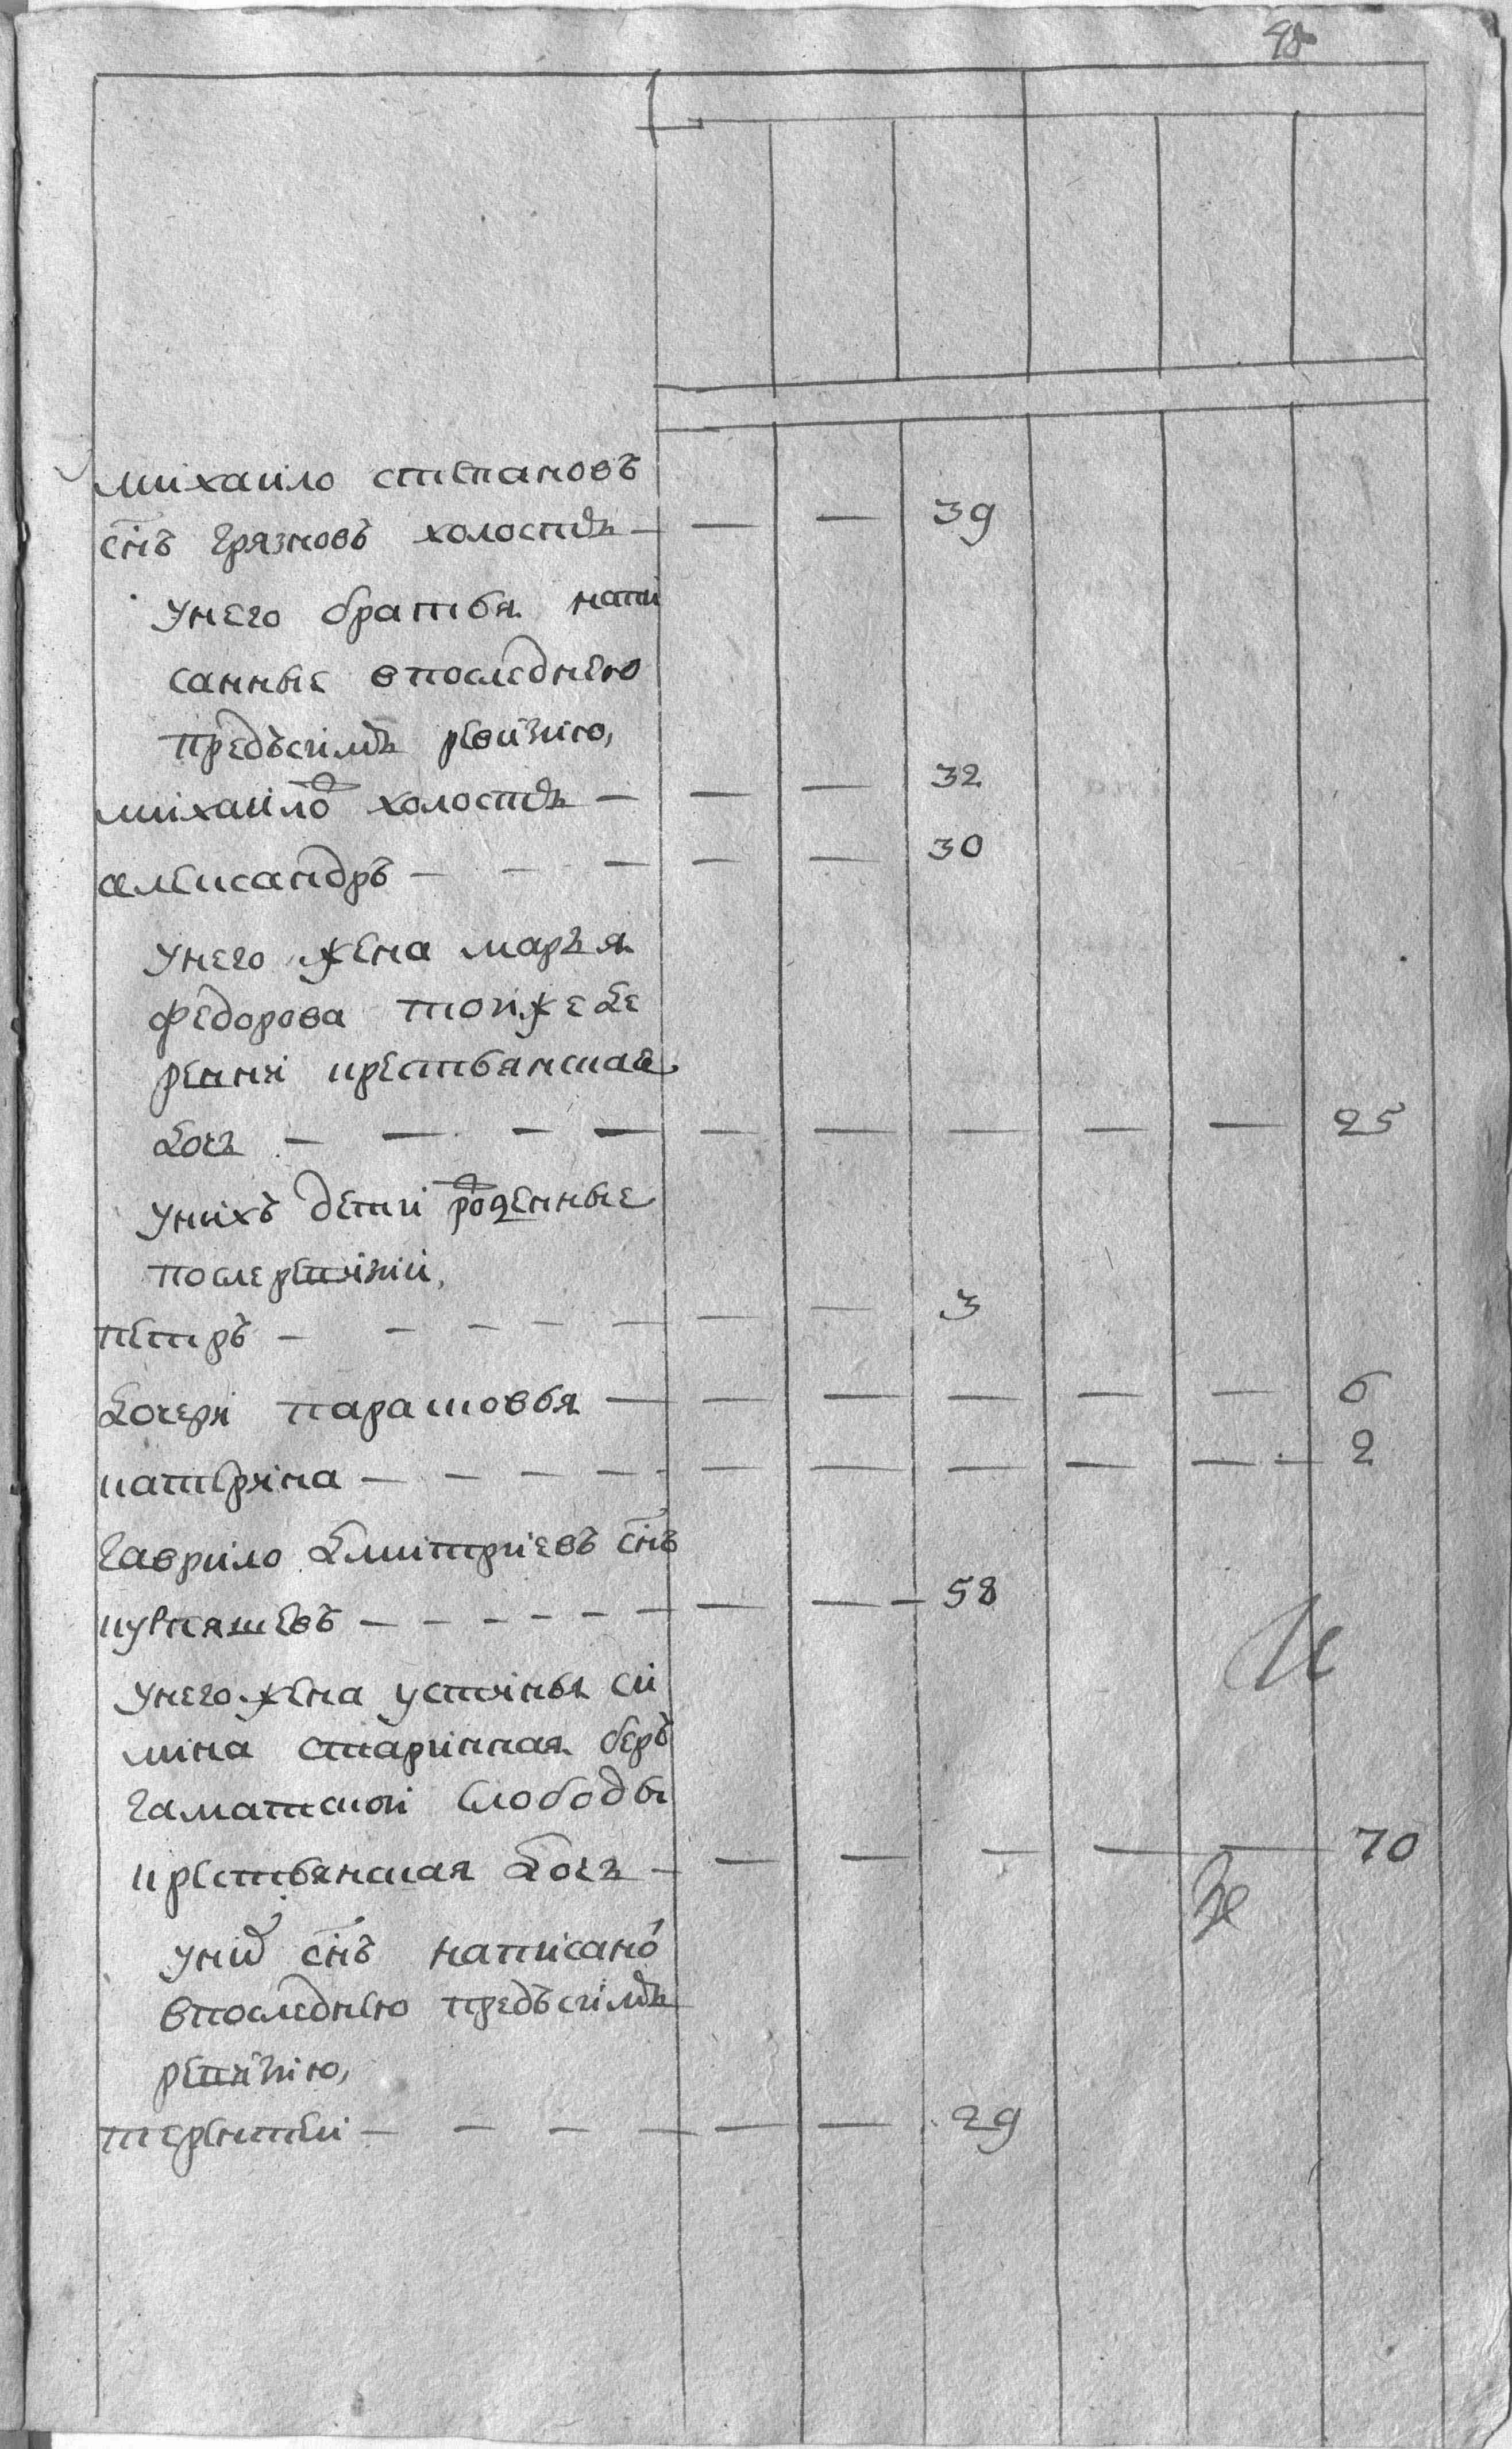 48
михаило степановъ
снъ грязновъ холостъ — — — 39
унего братья напи
санные впоследнею
предъсимъ ревизию,
михаило холостъ — — — 32
александръ — — — — — 30
унего жена марья
федорова тойже де
ревни крестьянская
дочь — — — — — — — — — 25
унихъ дети рожденные
послеревизии,
петръ — — — — — — — 3
дочери парасковья — — — — — — 6
катерина — — — — — — — — — — 2
гаврило дмитриевъ снъ
кувпяшевъ — — — — — — — — 58
унего жена устинья си
мина старинная беръ
гаматской слободы
крестьянская дочь — — — — — — 70
унихъ снъ написаной
впоследнею предъсимъ
ревизию,
терентей — — — — — — 29